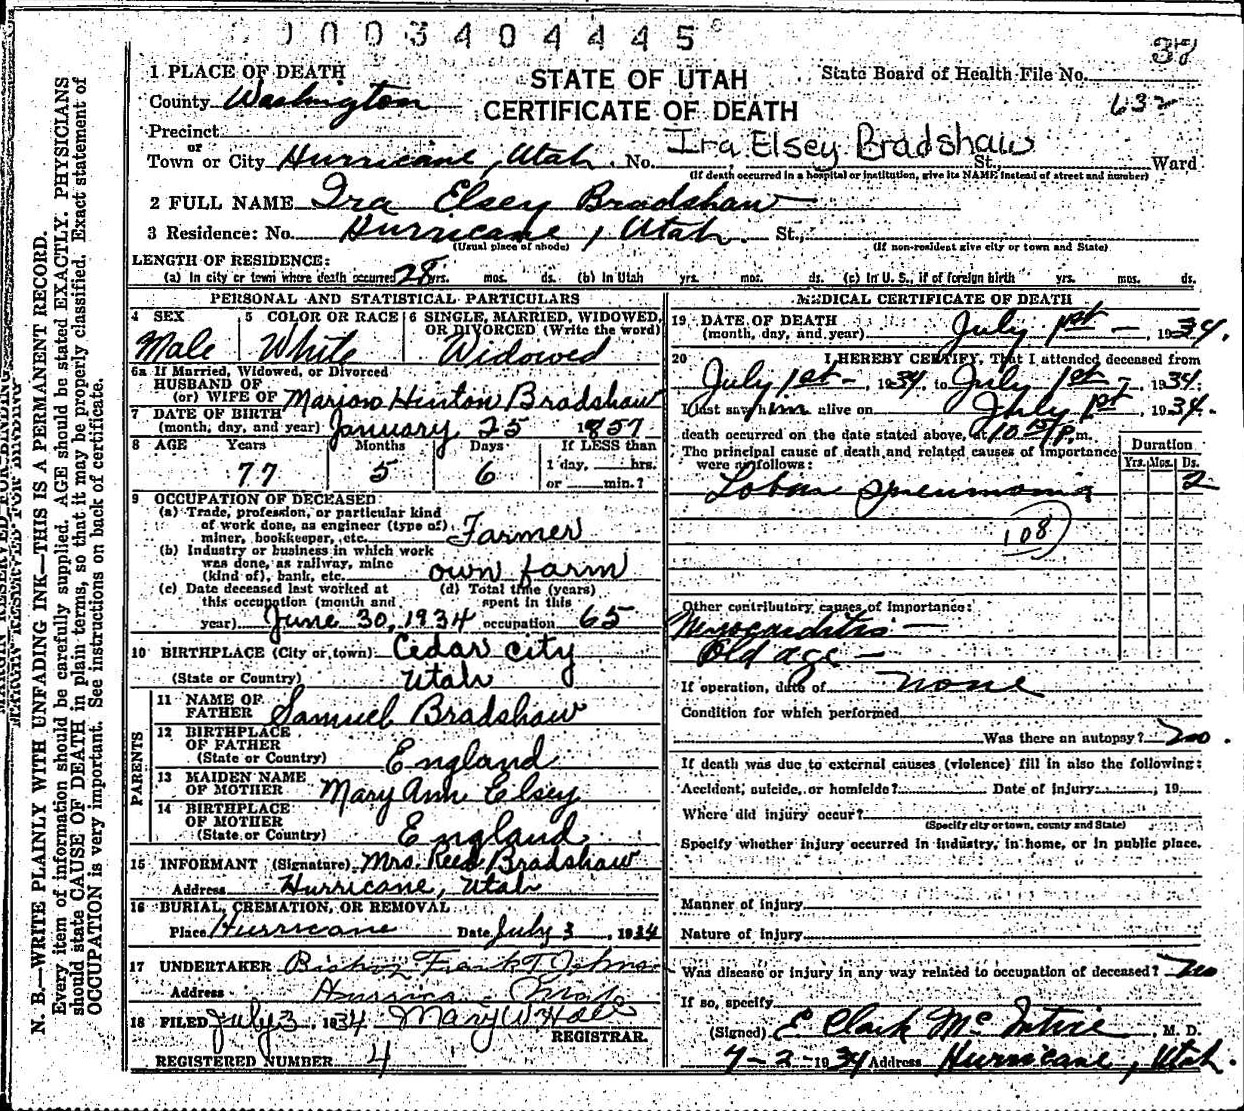 0003404445
38
1 PLACE OF DEATH
STATE OF UTAH
State Board of Health File No.
County Washington
CERTIFICATE OF DEATH
632
Precinct
or
Town or City Hurricane, Utah. No. Ira Elsey Bradshaw St., Ward
(If death occurred in a hospital or institution, give its NAME instead of street and number)
2 FULL NAME Ira Elsey Bradshaw
3 Residence: No. Hurricane, Utah. St.,
(Usual place of abode) (If non-resident give city or town and State)
LENGTH OF RESIDENCE:
(a) In city or town where death occurred 28 yrs. mos. ds. (b) In Utah yrs. mos. ds. (c) In U. S., if of foreign birth yrs. mos. ds.
PERSONAL AND STATISTICAL PARTICULARS
4 SEX 5 COLOR OR RACE 6 SINGLE, MARRIED, WIDOWED,
OR DIVORCED (Write the word)
Male White Widowed
6a If Married, Widowed, or Divorced
HUSBAND OF
(or) WIFE OF Marion Hinton Bradshaw
7 DATE OF BIRTH
(month, day, and year) January 25 1857
8 AGE Years Months Days If LESS than
77 5 6 1 day, hrs.
or min.?
9 OCCUPATION OF DECEASED:
(a) Trade, profession, or particular kind
of work done, as engineer (type of),
miner, bookkeeper, etc. Farmer
(b) Industry or business in which work
was done, as railway, mine
(kind of), bank, etc. own farm
(c) Date deceased last worked at (d) Total time (years)
this occupation (month and spent in this
year) June 30, 1934 occupation 65
10 BIRTHPLACE (City or town) Cedar City
(State or Country) Utah
PARENTS
11 NAME OF
FATHER Samuel Bradshaw
12 BIRTHPLACE
OF FATHER
(State or Country) England
13 MAIDEN NAME
OF MOTHER Mary Ann Elsey
14 BIRTHPLACE
OF MOTHER
(State or Country) England
15 INFORMANT (Signature) Mrs. Reed Bradshaw
Address Hurricane, Utah
16 BURIAL, CREMATION, OR REMOVAL
Place Hurricane Date July 3, 1934
17 UNDERTAKER Bishop Frank T.
Address Hurricane Utah
18 FILED July 3, 1934 Mary W
REGISTRAR.
REGISTERED NUMBER 4
MEDICAL CERTIFICATE OF DEATH
19 DATE OF DEATH
(month, day, and year) July 1st - , 1934.
20 I HEREBY CERTIFY, That I attended deceased from
July 1st - , 1934 to July 1st - , 1934.
I last saw him alive on July 1st, 1934.
death occurred on the date stated above, at 10 15 P.m.
The principal cause of death and related causes of importance
were as follows:
Duration
Yrs. Mos. Ds.
Lobar pneumonia 2
108
Other contributory causes of importance:
Myocarditis -
Old age -
If operation, date of none
Condition for which performed
Was there an autopsy? no.
If death was due to external causes (violence) fill in also the following:
Accident, suicide, or homicide? Date of injury , 19
Where did injury occur?
(Specify city or town, county and State)
Specify whether injury occurred in industry, in home, or in public place.
Manner of injury
Nature of injury
Was disease or injury in any way related to occupation of deceased? no
If so, specify
(Signed) E Clark McIntire, M. D.
7-2-1934 Address Hurricane, Utah.
MARGIN RESERVED FOR BINDING
N. B.—WRITE PLAINLY WITH UNFADING INK—THIS IS A PERMANENT RECORD.
Every item of information should be carefully supplied. AGE should be stated EXACTLY. PHYSICIANS
should state CAUSE OF DEATH in plain terms, so that it may be properly classified. Exact statement of
OCCUPATION is very important. See instructions on back of certificate.